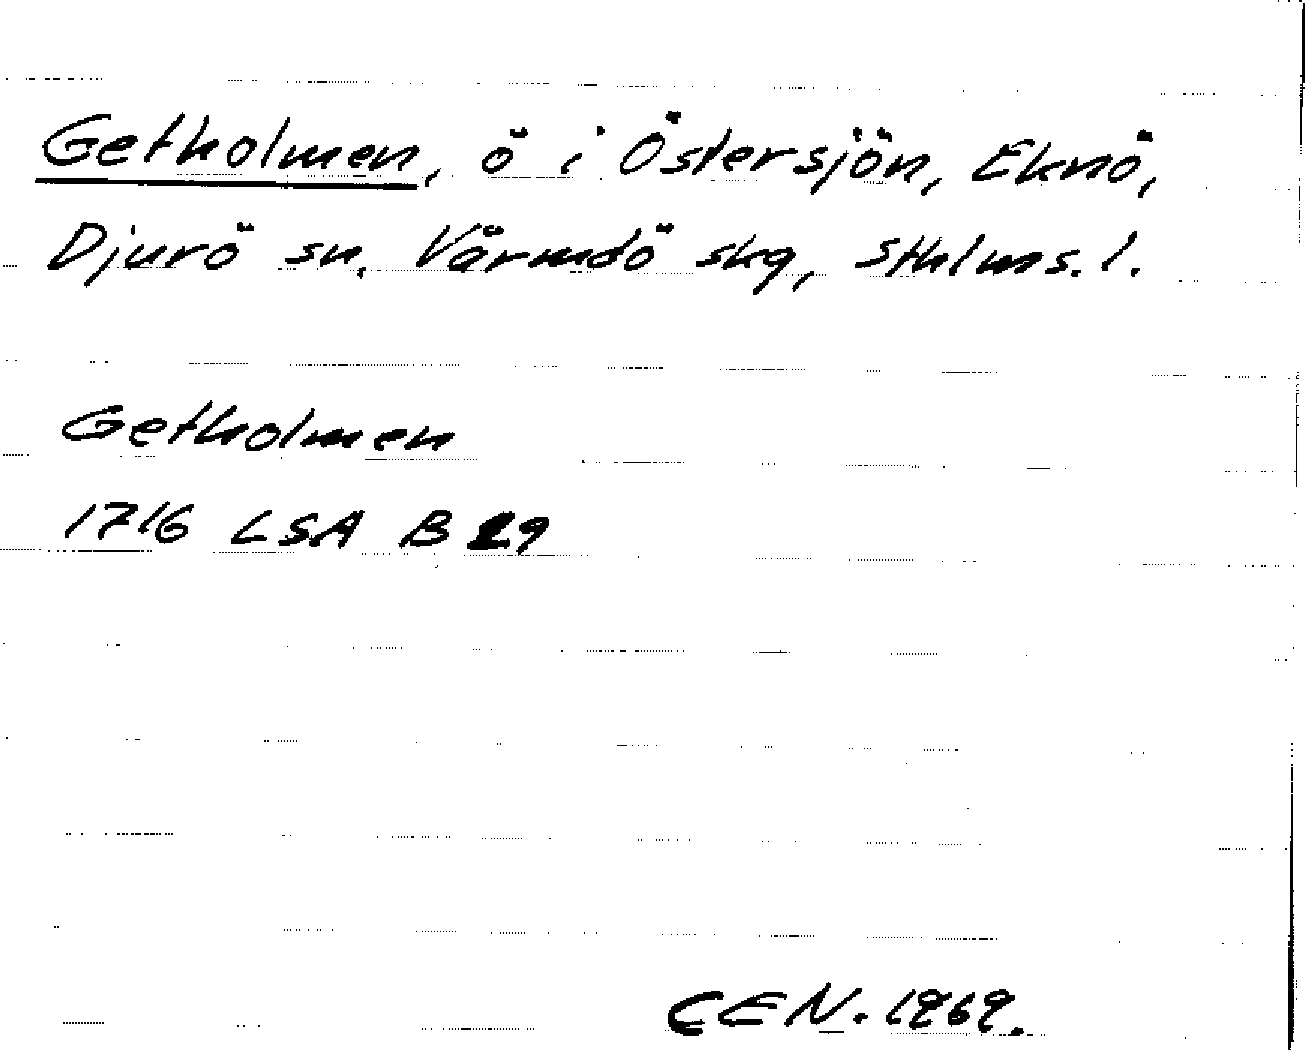 Getholmen, ö i Östersjön, Eknö,
Djurö sn. Värmdö skg, Sthlms. l.
Getholmen
1716 LSA B 29
CEN. 1969.